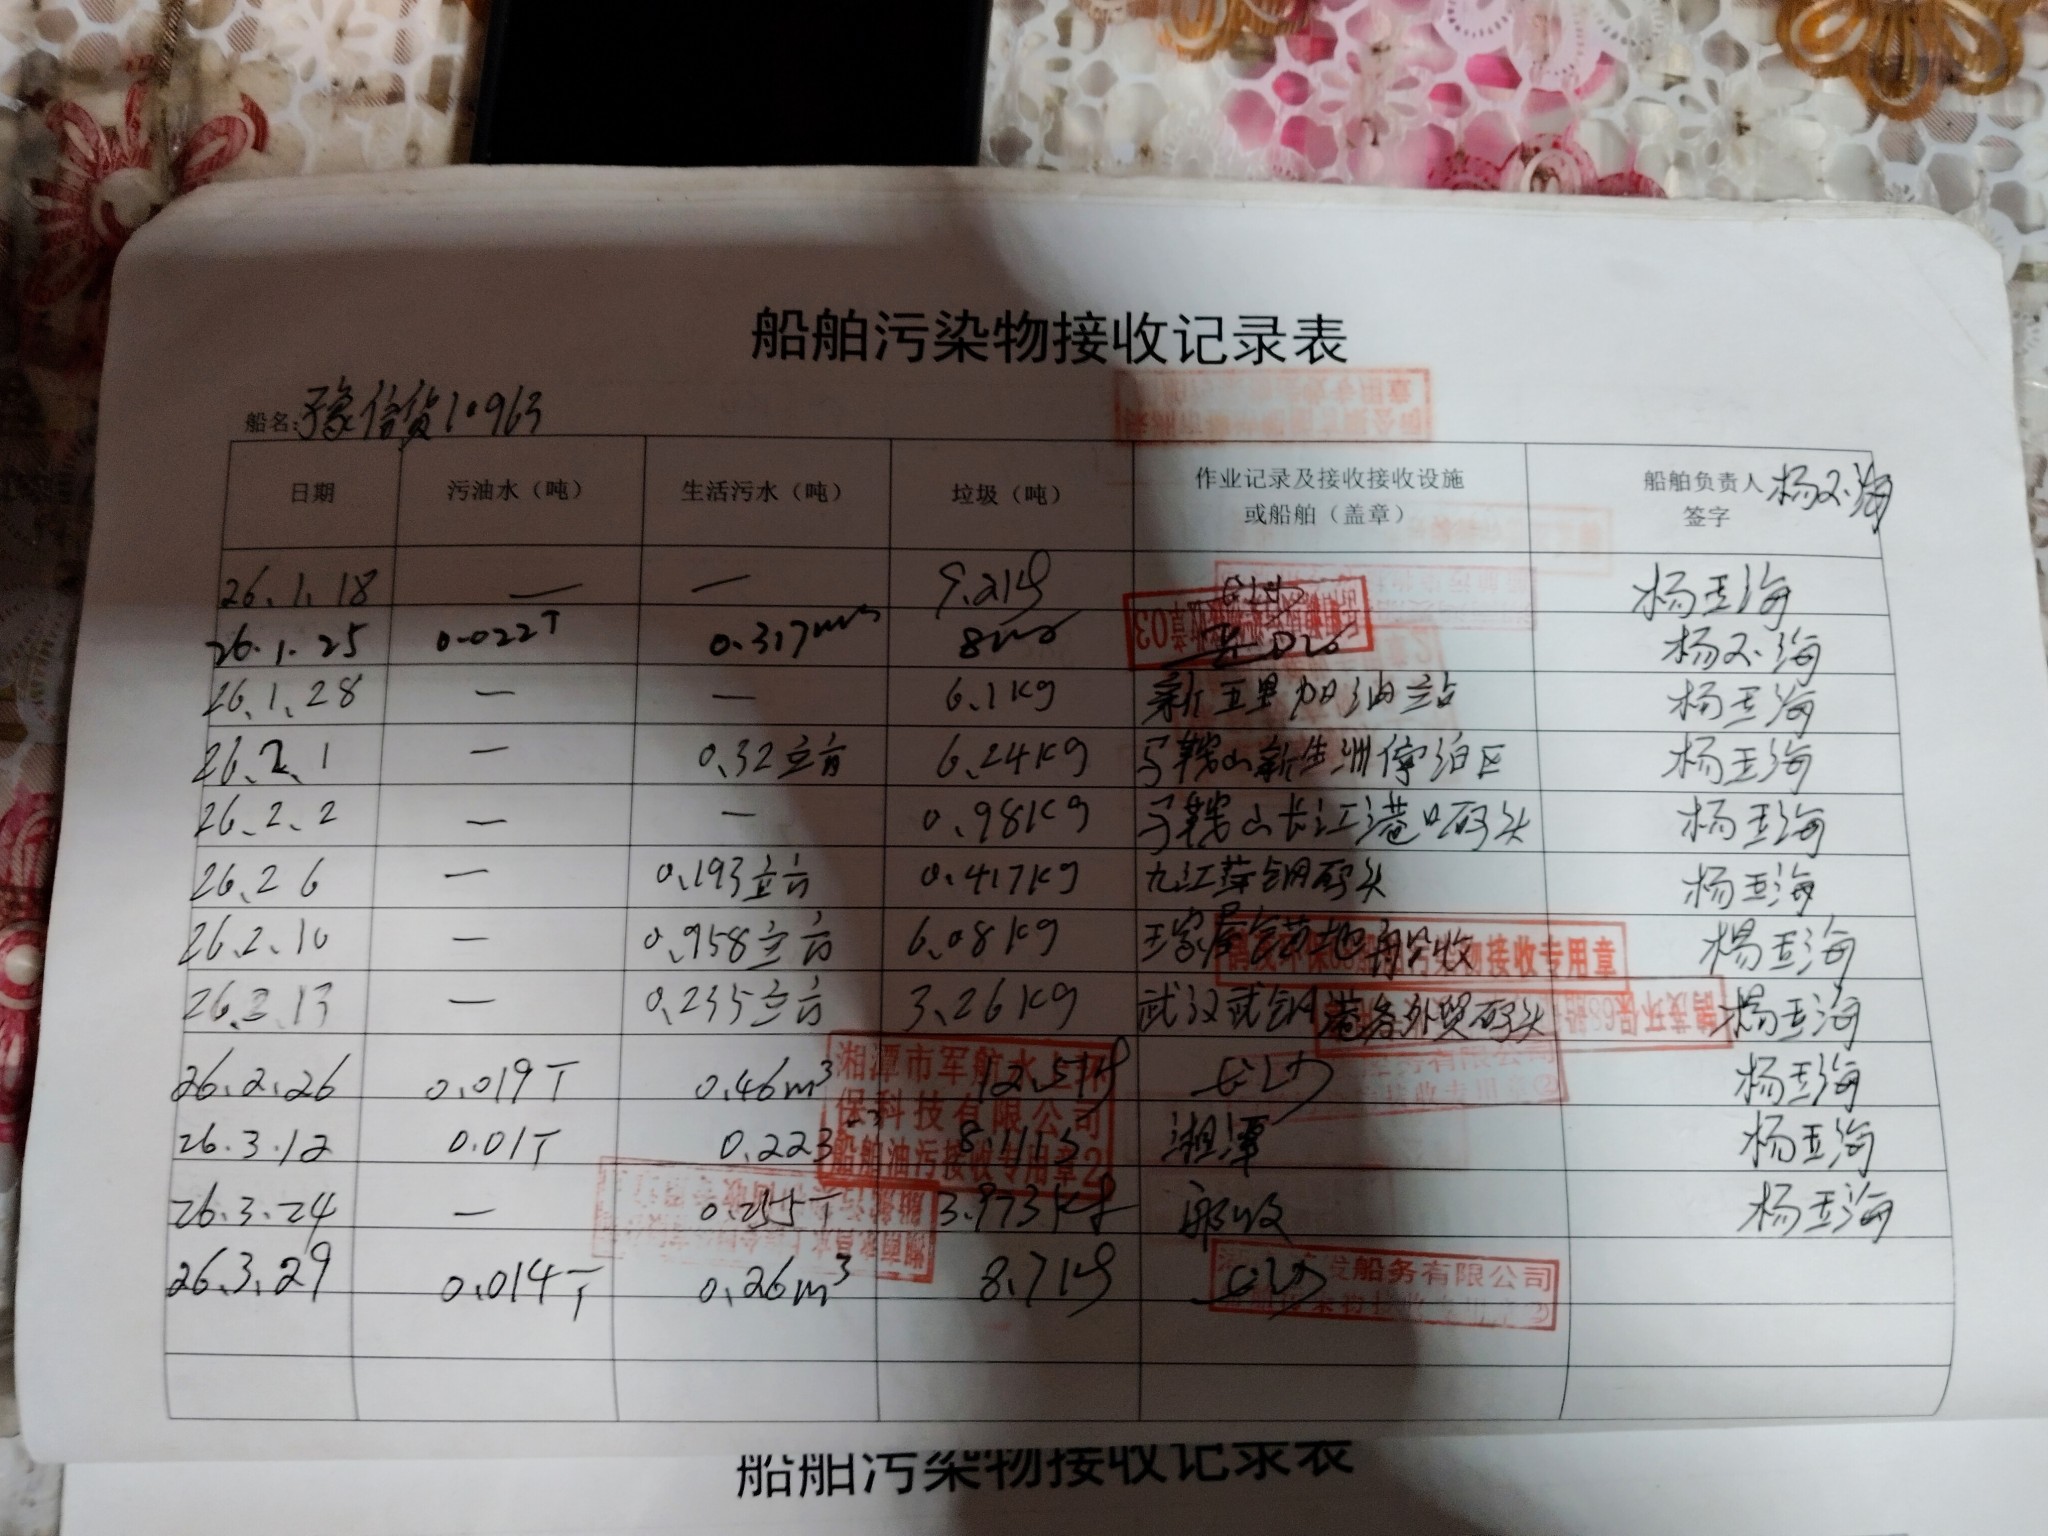 船舶污染物接收记录表
船名:豫信货10963
日期 污油水（吨） 生活污水（吨） 垃圾（吨） 作业记录及接收接收设施或船舶（盖章） 船舶负责人签字
26.1.18 — — 杨玉海
26.1.25 0.022T 0.317m³
26.1.28 — — 6.1kg 新五里加油站 杨玉海
26.2.1 — 0.32立方 6.24kg 马鞍山新生洲停泊区 杨玉海
26.2.2 — — 0.98kg 马鞍山长江港口码头 杨玉海
26.2.6 — 0.193立方 0.417kg 九江 码头 杨玉海
26.2.10 — 0.958立方 6.08kg 杨玉海
物接收专用章
26.2.13 — 0.235立方 3.26kg 武汉武钢港务外贸码头 杨玉海
26.2.26 0.019T 0.46m³ 12.5kg 长沙 杨玉海
湘潭市军航水上环
保科技有限公司
船舶油污接收专用章2
26.3.12 0.01T 0.223 湘潭 杨玉海
26.3.24 — 0.255T 3.973kg 杨玉海
26.3.29 0.014T 0.26m³ 8.7kg 长沙
船务有限公司
船舶污染物接收记录表